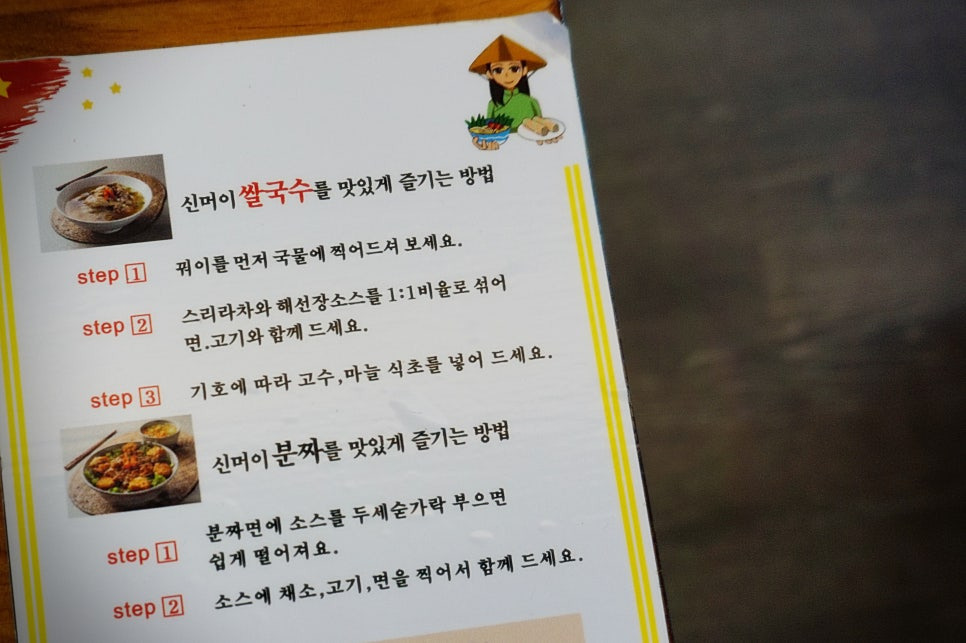 신머이 쌀국수를 맛있게 즐기는 방법
step 1 꿔이를 먼저 국물에 찍어드셔 보세요.
step 2 스리라차와 해선장소스를 1:1비율로 섞어
면.고기와 함께 드세요.
step 3 기호에 따라 고수,마늘 식초를 넣어 드세요.
신머이 분짜를 맛있게 즐기는 방법
step 1 분짜면에 소스를 두세숟가락 부으면
쉽게 떨어져요.
step 2 소스에 채소,고기,면을 찍어서 함께 드세요.